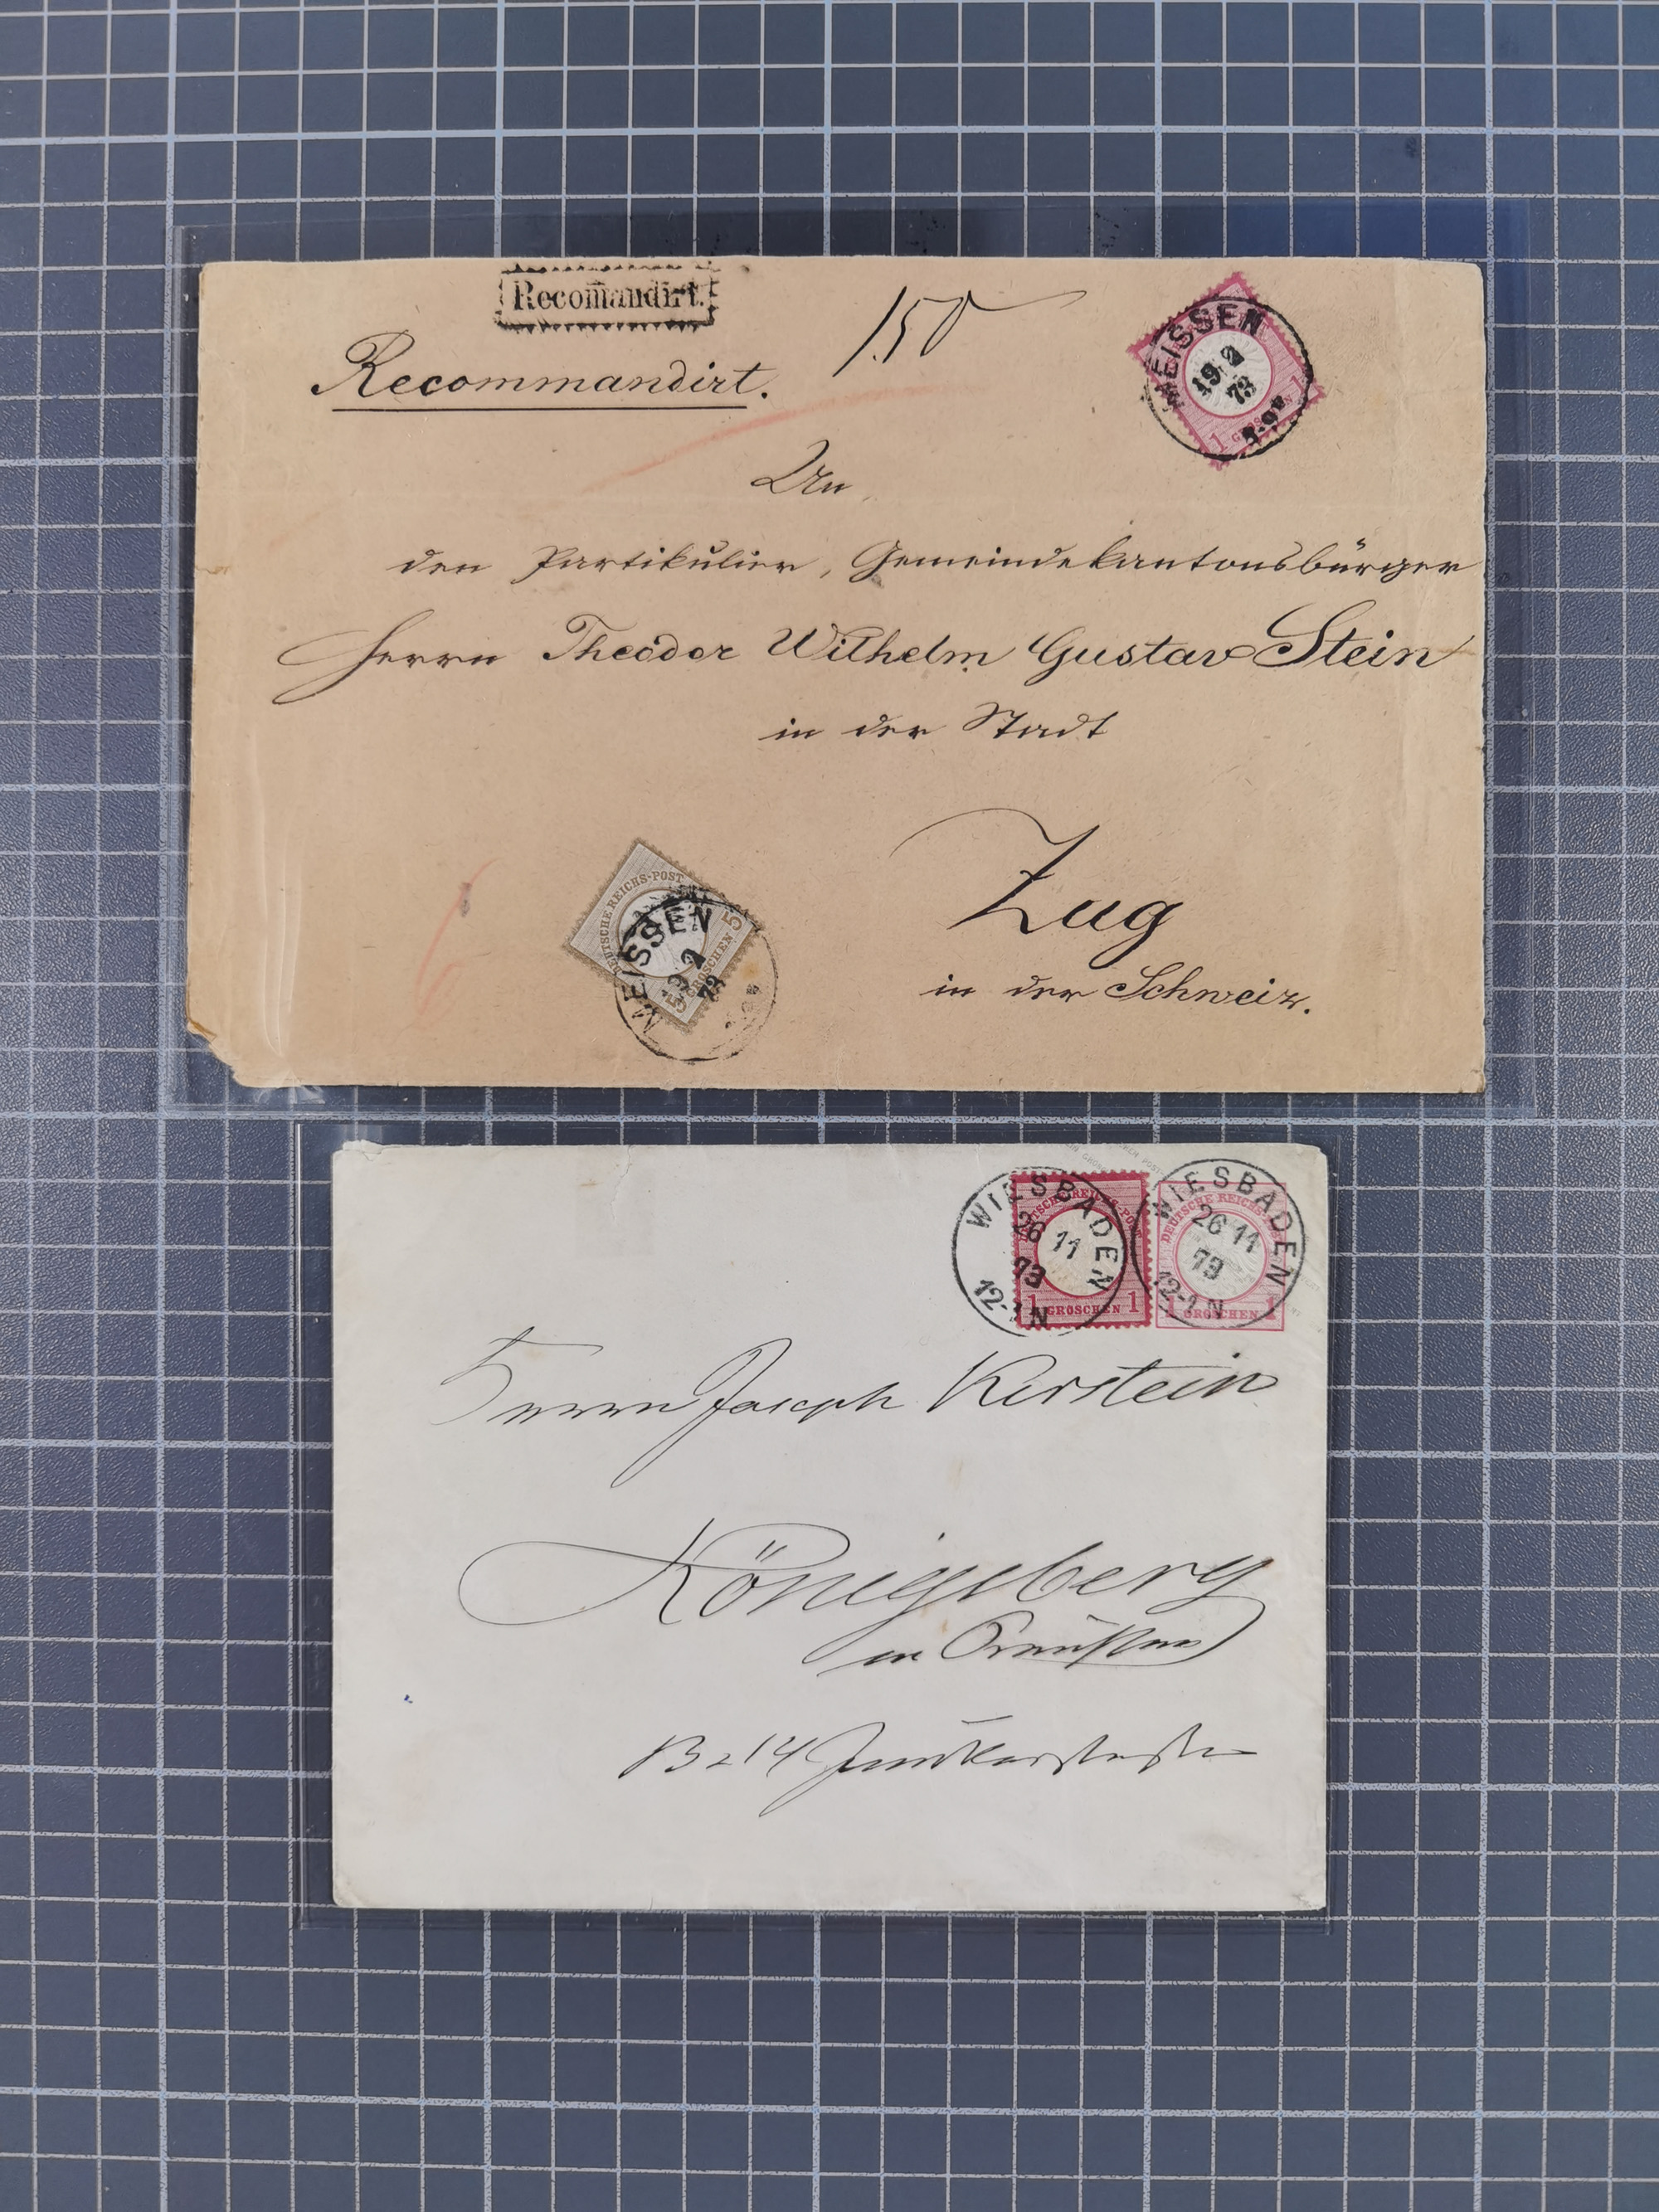 Recomandirt.
150
Recommandirt.
MEISSEN
19 2
73
1 GROSCHEN 1
An
den Partikulier, Gemeindekantonsbürger
Herrn Theodor Wilhelm Gustav Stein
in der Stadt
Zug
in der Schweiz.
DEUTSCHE REICHS-POST
5 GROSCHEN 5
MEISSEN
19 2
73
WIESBADEN
26 11
73
12-1 N
DEUTSCHE REICHS-POST
1 GROSCHEN 1
WIESBADEN
26 11
73
12-1 N
DEUTSCHE REICHS-POST
1 GROSCHEN 1
Herrn Joseph Kirstein
Königsberg
in Preußen